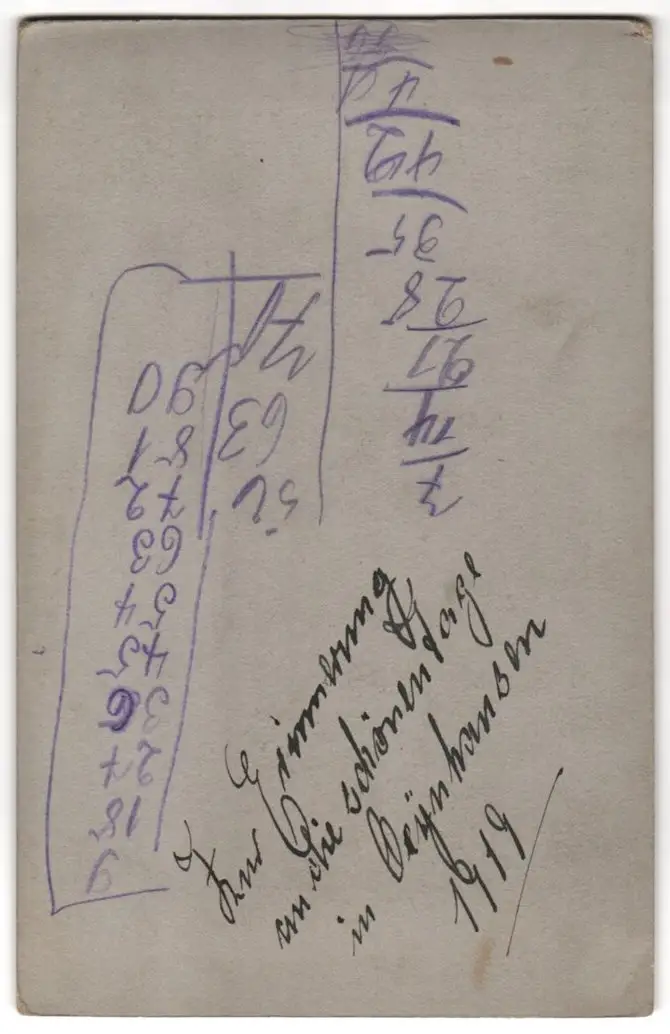 Zur Erinnerung
an die schönen Tage
in Oeynhausen
1919
7
14
21
28
35
42
49
56
63
70
9
18
27
36
45
54
63
72
81
90